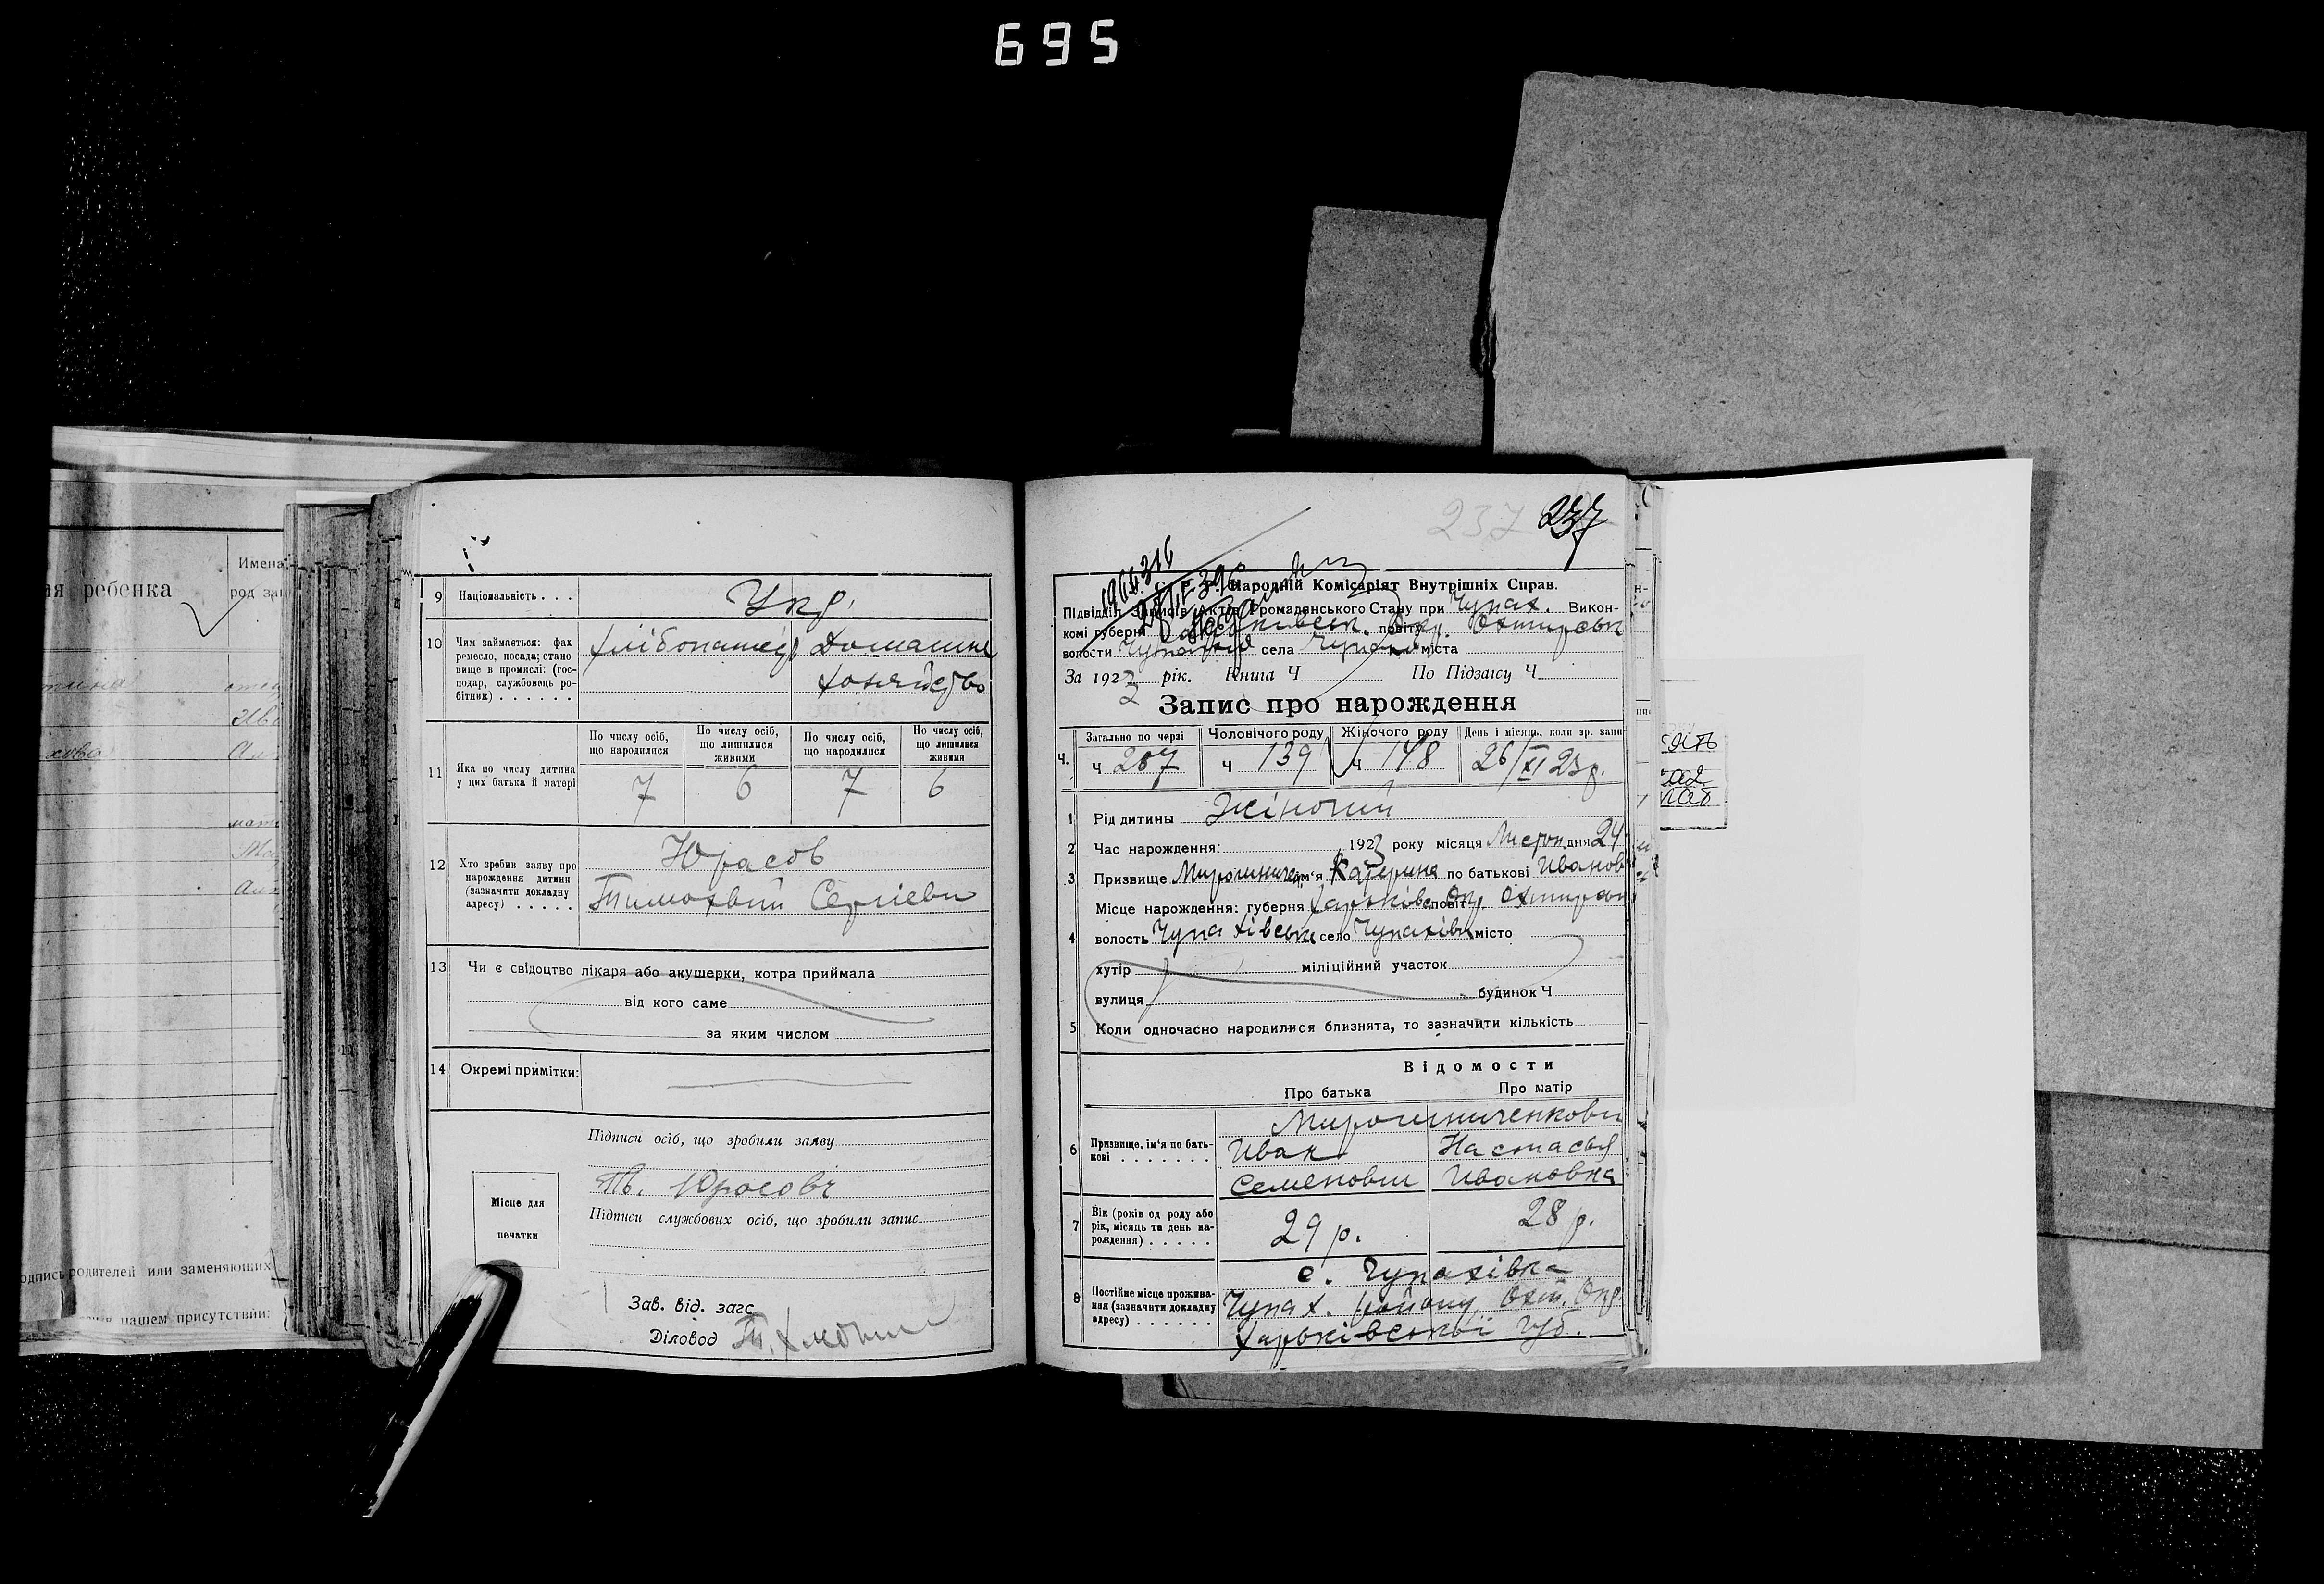 695
ая ребенка
Имена
род за
одпись родителей или заменяющих
в нашем присутствии:
9 Національність . . . Укр.
10 Чим займається: фах ремесло, посада; стано вище в промислі: (гос- подар, службовець ро- бітник) . . . . . .
хлібопашец Домашнє
хозяйство
11 Яка по числу дитина у цих батька й матері
По числу осіб, що народилися По числу осіб, що лишилися живими По числу осіб, що народилися По числу осіб, що лишилися живими
7 6 7 6
12 Хто зробив заяву про нарождення дитини (зазначити докладну адресу) . . . . .
Юрасов
Тимофвий Сергіеви
13 Чи є свідоцтво лікаря або акушерки, котра приймала
від кого саме
за яким числом
14 Окремі примітки:
Підписи осіб, що зробили заяву
Юрасовъ
Місце для печатки
Підписи службових осіб, що зробили запис
Зав. від. загс
Діловод
237 237
С. Р. Р. Народній Комісаріят Внутрішніх Справ.
Підвідділ Записів Актів Громадянського Стану при Чупах. Викон-
комі губерні Харьківськ. повіту Окр. Охтирськ
волости села міста
За 1923 рік. Книга Ч По Підзагсу Ч
3
Запис про нарождення
Загально по черзі Чоловічого роду Жіночого роду День і місяць, коли зр. запи
Ч. Ч 287 Ч 139 Ч 148 26/XI 23р.
1 Рід дитины Жіночий
2 Час нарождення: 1923 року місяця Листоп. дня 24
3 Призвище Мирошничен ім'я Катерина по батькові Иванов
4 Місце нарождення: губерня Харьківс повіт Окр Охтирськ
волость Чупахівськ село Чупахівк місто
хутір міліційний участок
вулиця будинок Ч
5 Коли одночасно народилися близнята, то зазначити кількість
Відомости
Про батька Про матір
6 Призвище, ім'я по бать- кові . . . . . . .
Мирошниченкови
Иван Настасья
Семенови Ивановна
7 Вік (років од роду або рік, місяць та день на- рождення) . . . . .
29 р. 28 р.
8 Постійне місце прожива- ння (зазначити докладну адресу) . . . . . .
с. Чупахівка
Чупах. району, Охт. Окр.
Харьківської губ.